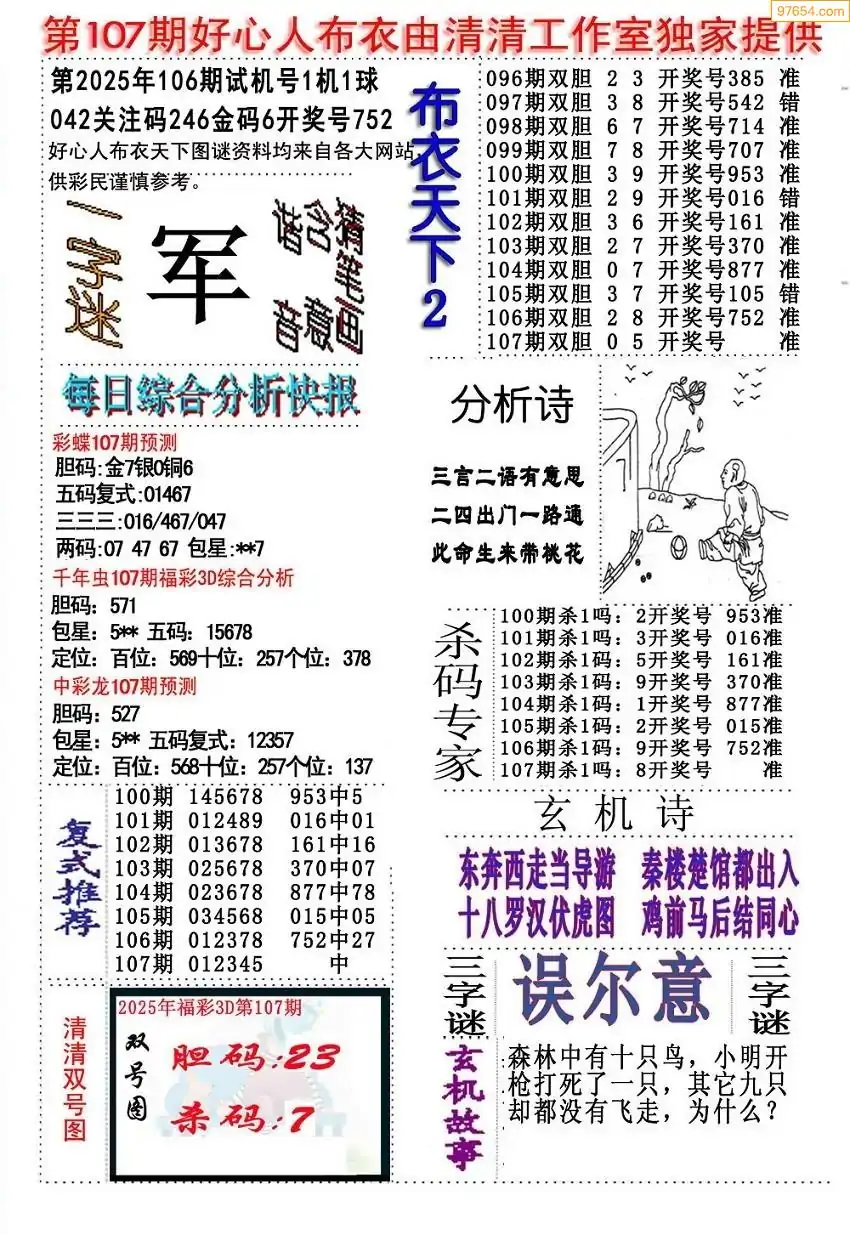 97654.com
第107期好心人布衣由清清工作室独家提供
第2025年106期试机号1机1球
042关注码246金码6开奖号752
好心人布衣天下图谜资料均来自各大网站,
供彩民谨慎参考。
一字迷
军
谐音
含意
猜笔画
布衣天下2
096期双胆 2 3 开奖号385 准
097期双胆 3 8 开奖号542 错
098期双胆 6 7 开奖号714 准
099期双胆 7 8 开奖号707 准
100期双胆 3 9 开奖号953 准
101期双胆 2 9 开奖号016 错
102期双胆 3 6 开奖号161 准
103期双胆 2 7 开奖号370 准
104期双胆 0 7 开奖号877 准
105期双胆 3 7 开奖号105 错
106期双胆 2 8 开奖号752 准
107期双胆 0 5 开奖号 准
每日综合分析快报
彩蝶107期预测
胆码:金7银0铜6
五码复式:01467
三三三:016/467/047
两码:07 47 67 包星:**7
千年虫107期福彩3D综合分析
胆码: 571
包星: 5** 五码: 15678
定位: 百位: 569十位: 257个位: 378
中彩龙107期预测
胆码: 527
包星: 5** 五码复式: 12357
定位: 百位: 568十位: 257个位: 137
分析诗
三言二语有意思
二四出门一路通
此命生来带桃花
杀码专家
100期杀1吗: 2开奖号 953准
101期杀1吗: 3开奖号 016准
102期杀1码: 5开奖号 161准
103期杀1码: 9开奖号 370准
104期杀1码: 1开奖号 877准
105期杀1码: 2开奖号 015准
106期杀1码: 9开奖号 752准
107期杀1吗: 8开奖号 准
复式推荐
100期 145678 953中5
101期 012489 016中01
102期 013678 161中16
103期 025678 370中07
104期 023678 877中78
105期 034568 015中05
106期 012378 752中27
107期 012345 中
玄机诗
东奔西走当导游 秦楼楚馆都出入
十八罗汉伏虎图 鸡前马后结同心
三字谜
误尔意
三字谜
清清双号图
2025年福彩3D第107期
双号图
胆码:23
杀码:7
玄机故事
森林中有十只鸟，小明开
枪打死了一只，其它九只
却都没有飞走，为什么？